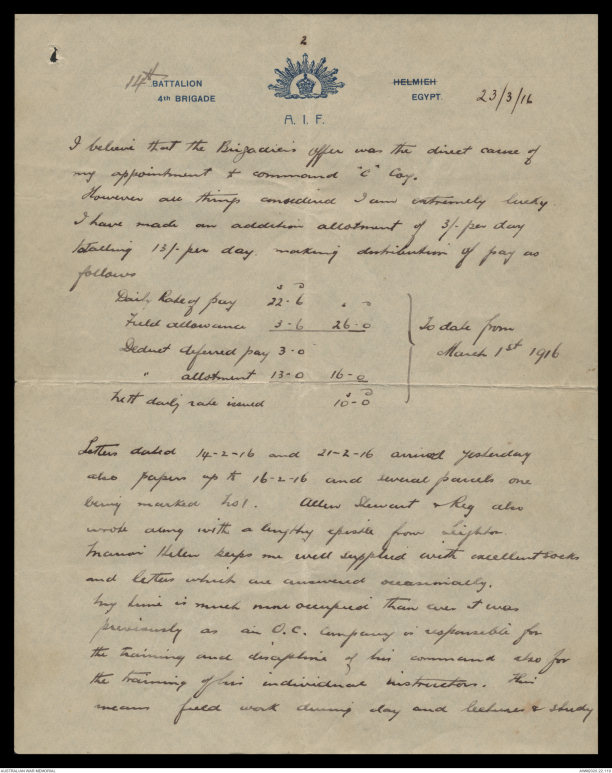 2
14th BATTALION
4th BRIGADE
A. I. F.
HELMIEH
EGYPT.
23/3/16
I believe that the Brigadier's offer was the direct cause of
my appointment to command "C" Coy.
However all things considered I am extremely lucky
I have made an addition allotment of 3/- per day
totalling 13/- per day, making distribution of pay as
follows
s D
Daily Rate of pay 22-6 s D
Field allowance 3-6 26-0
Deduct deferred pay 3-0
" allotment 13-0 16-0
s D
Nett daily rate issued 10-0
To date from
March 1st 1916
Letters dated 14-2-16 and 21-2-16 arrived yesterday
also papers up to 16-2-16 and several parcels one
being marked No1. Allen Stewart & Reg also
wrote along with a lengthy epistle from Leighton.
Helen keeps me well supplied with excellent socks
and letters which are answered occasionally.
My time is much more occupied than ever it was
previously as an O.C. Company is responsible for
the training and discipline of his command also for
the training of his individual instructors. This
means field work during day and lectures & study
AUSTRALIAN WAR MEMORIAL